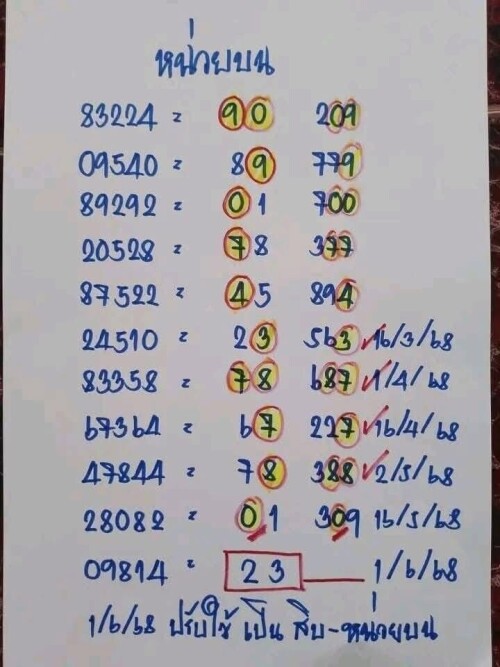 หน่วยบน
83224 = 90 209
09540 = 89 779
89292 = 01 700
20528 = 78 377
87522 = 45 894
24510 = 23 563 ✓ 16/3/68
83358 = 78 687 ✓ 1/4/68
67364 = 67 227 ✓ 16/4/68
47844 = 78 388 ✓ 2/5/68
28082 = 01 309 16/5/68
09814 = 23 1/6/68
1/6/68 ปรับใช้ เป็น สิบ-หน่วยบน